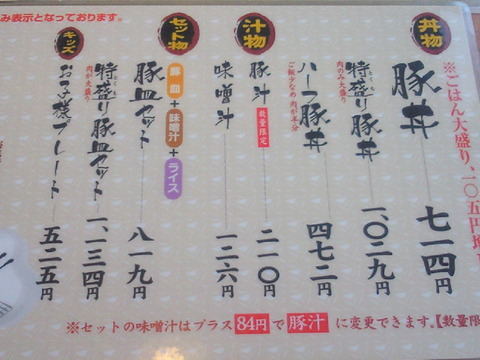 み表示となっております。
丼物
※ごはん大盛り、一〇五円増
豚丼 七一四円
特盛り豚丼 一、〇二九円
とくもり
肉のみ大盛り
ハーフ豚丼 四七二円
ご飯少なめ 肉が半分
汁物
豚汁 二一〇円
数量限定
味噌汁 一二六円
セット物
豚皿+味噌汁+ライス
豚皿セット 八一九円
特盛り豚皿セット 一、一三四円
とくもり
肉が大盛り
キッズ
お子様プレート 五二五円
※セットの味噌汁はプラス84円で豚汁に変更できます。【数量限